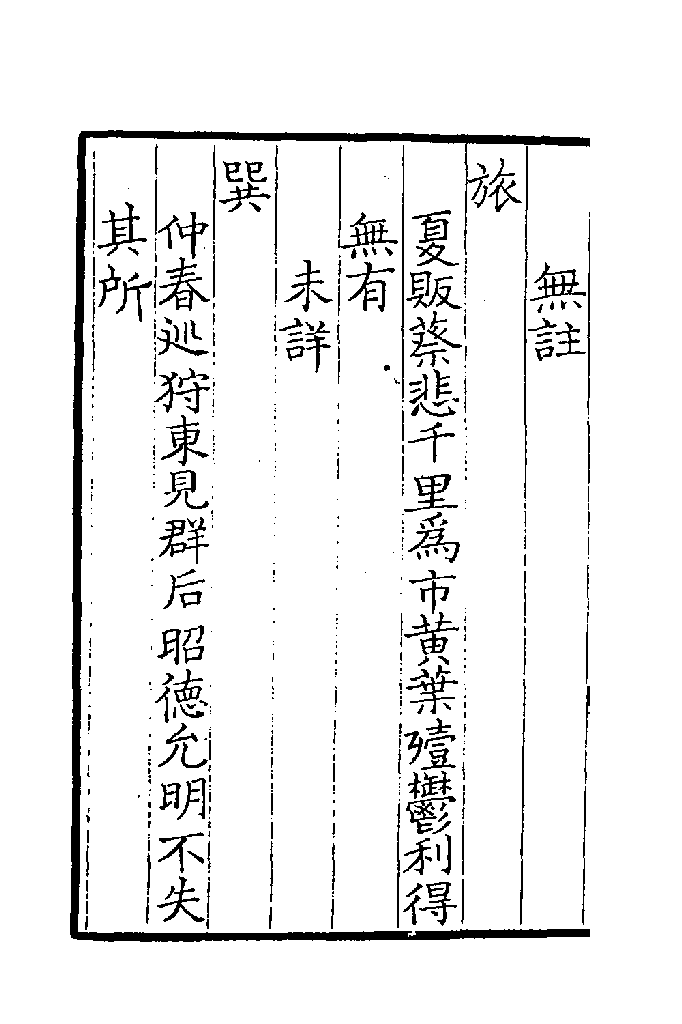 無註
旅
夏販蔡悲千里為市黃葉殪鬱利得
無有
未詳
巽
仲春廵狩東見群后昭德允明不失
其所